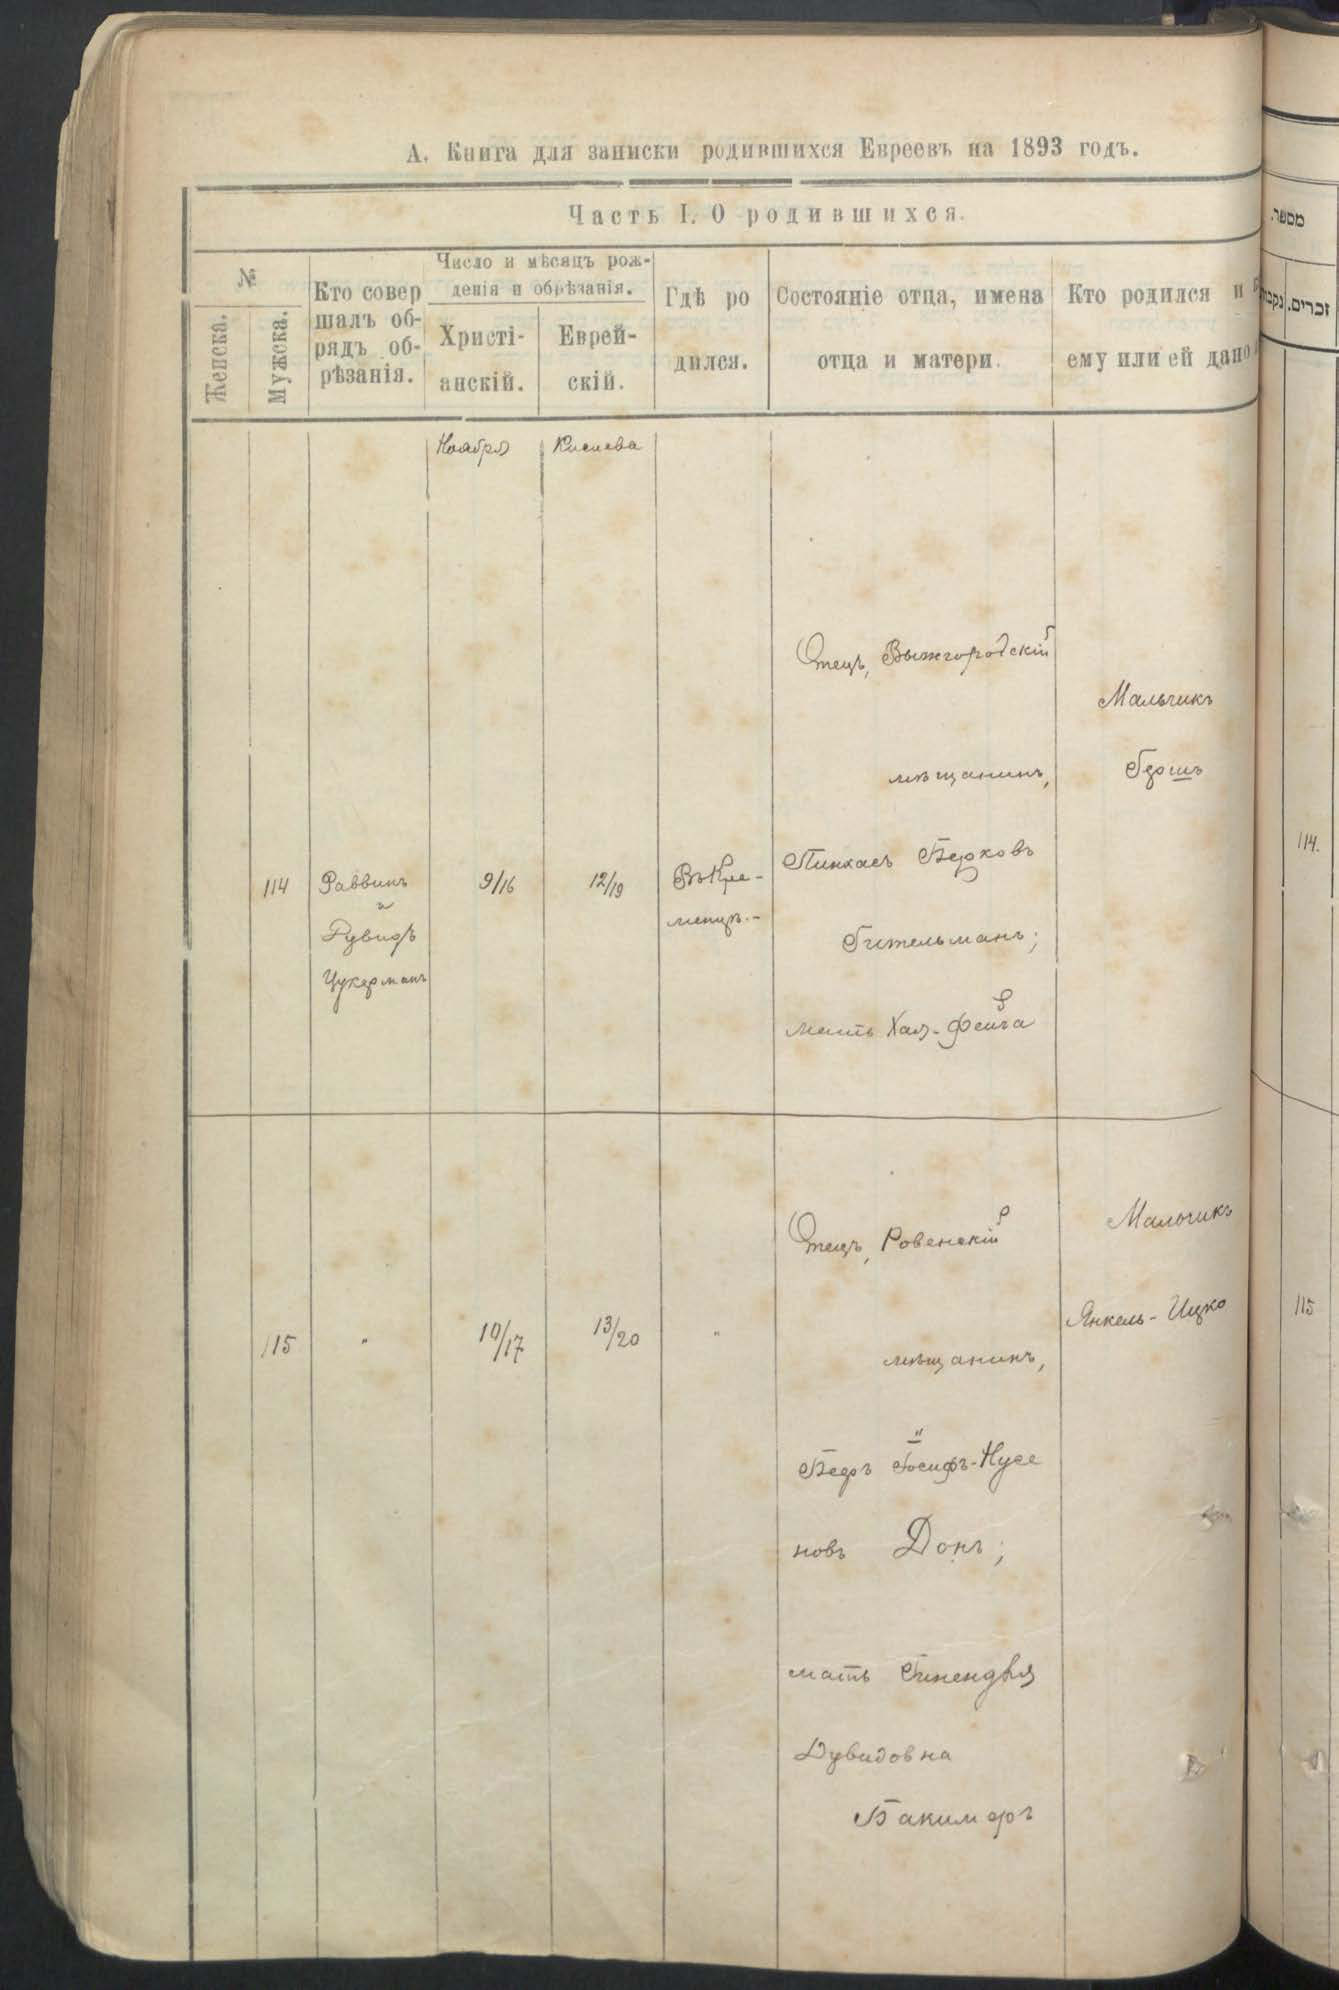 А. Книга для записки родившихся Евреевъ на 1893 годъ.
Часть I. О родившихся.
№
Женска.
Мужска.
Кто совер
шалъ об-
рядъ об-
рѣзанія.
Число и мѣсяцъ рож-
денія и обрѣзанія.
Христі-
анскій.
Еврей-
скій.
Гдѣ ро
дился.
Состояніе отца, имена
отца и матери.
Кто родился и
ему или ей дано
Ноября
Кислева
114
Раввинъ
и
Рувидъ
Цукерманъ
9/16
12/19
Въ Кре-
менцѣ.-
Отецъ, Вышгородскій
мѣщанинъ,
Пинхасъ Берковъ
Гительманъ;
мать Хая-Фейга
Мальчикъ
Гершъ
115
"
10/17
13/20
"
Отецъ, Ровенскій
мѣщанинъ,
Беръ Іосифъ-Нусе
новъ Донъ;
мать Гинендля
Дувидовна
Бакимеръ
Мальчикъ
Янкель-Ицко
מספר.
זכרים.
114.
115